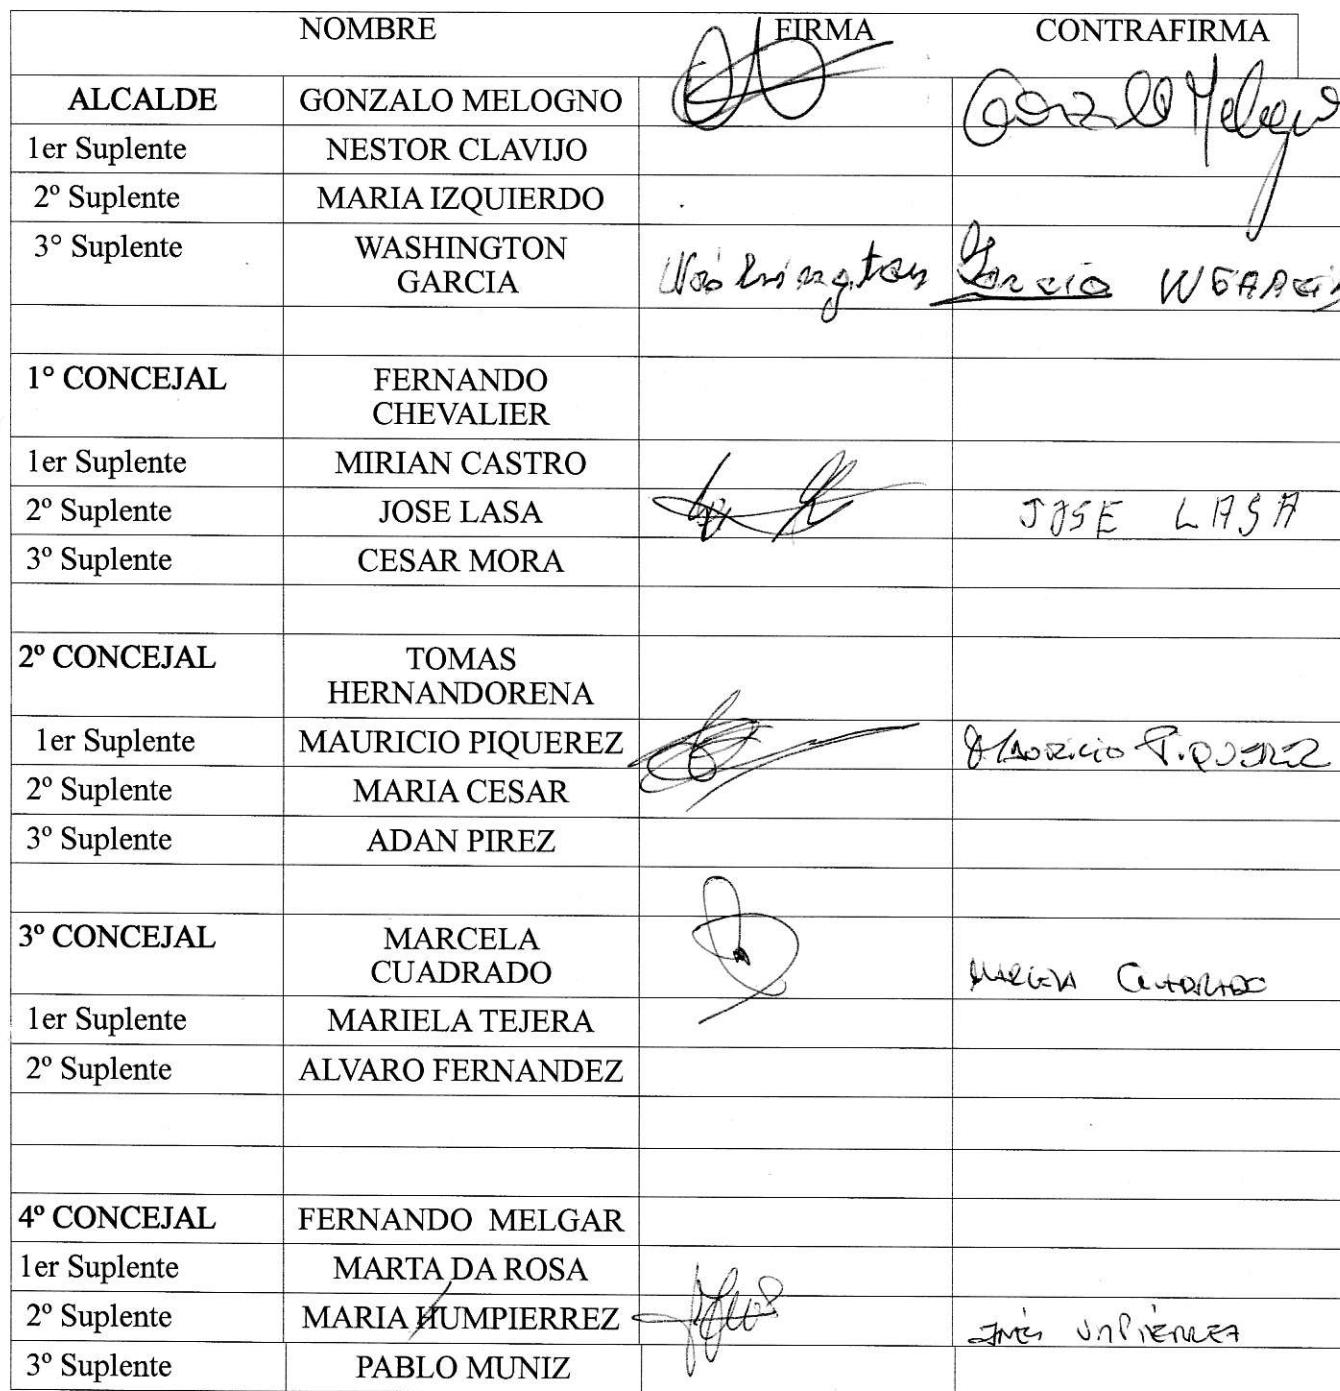 NOMBRE FIRMA CONTRAFIRMA
ALCALDE GONZALO MELOGNO Gonzalo Melogno
1er Suplente NESTOR CLAVIJO
2º Suplente MARIA IZQUIERDO
3° Suplente WASHINGTON
GARCIA Washington Garcia W GARCIA
1° CONCEJAL FERNANDO
CHEVALIER
1er Suplente MIRIAN CASTRO
2º Suplente JOSE LASA JOSE LASA
3º Suplente CESAR MORA
2º CONCEJAL TOMAS
HERNANDORENA
1er Suplente MAURICIO PIQUEREZ MAURICIO PIQUEREZ
2º Suplente MARIA CESAR
3º Suplente ADAN PIREZ
3º CONCEJAL MARCELA
CUADRADO MARCELA CUADRADO
1er Suplente MARIELA TEJERA
2º Suplente ALVARO FERNANDEZ
4º CONCEJAL FERNANDO MELGAR
1er Suplente MARTA DA ROSA
2º Suplente MARIA HUMPIERREZ INÉS
3º Suplente PABLO MUNIZ